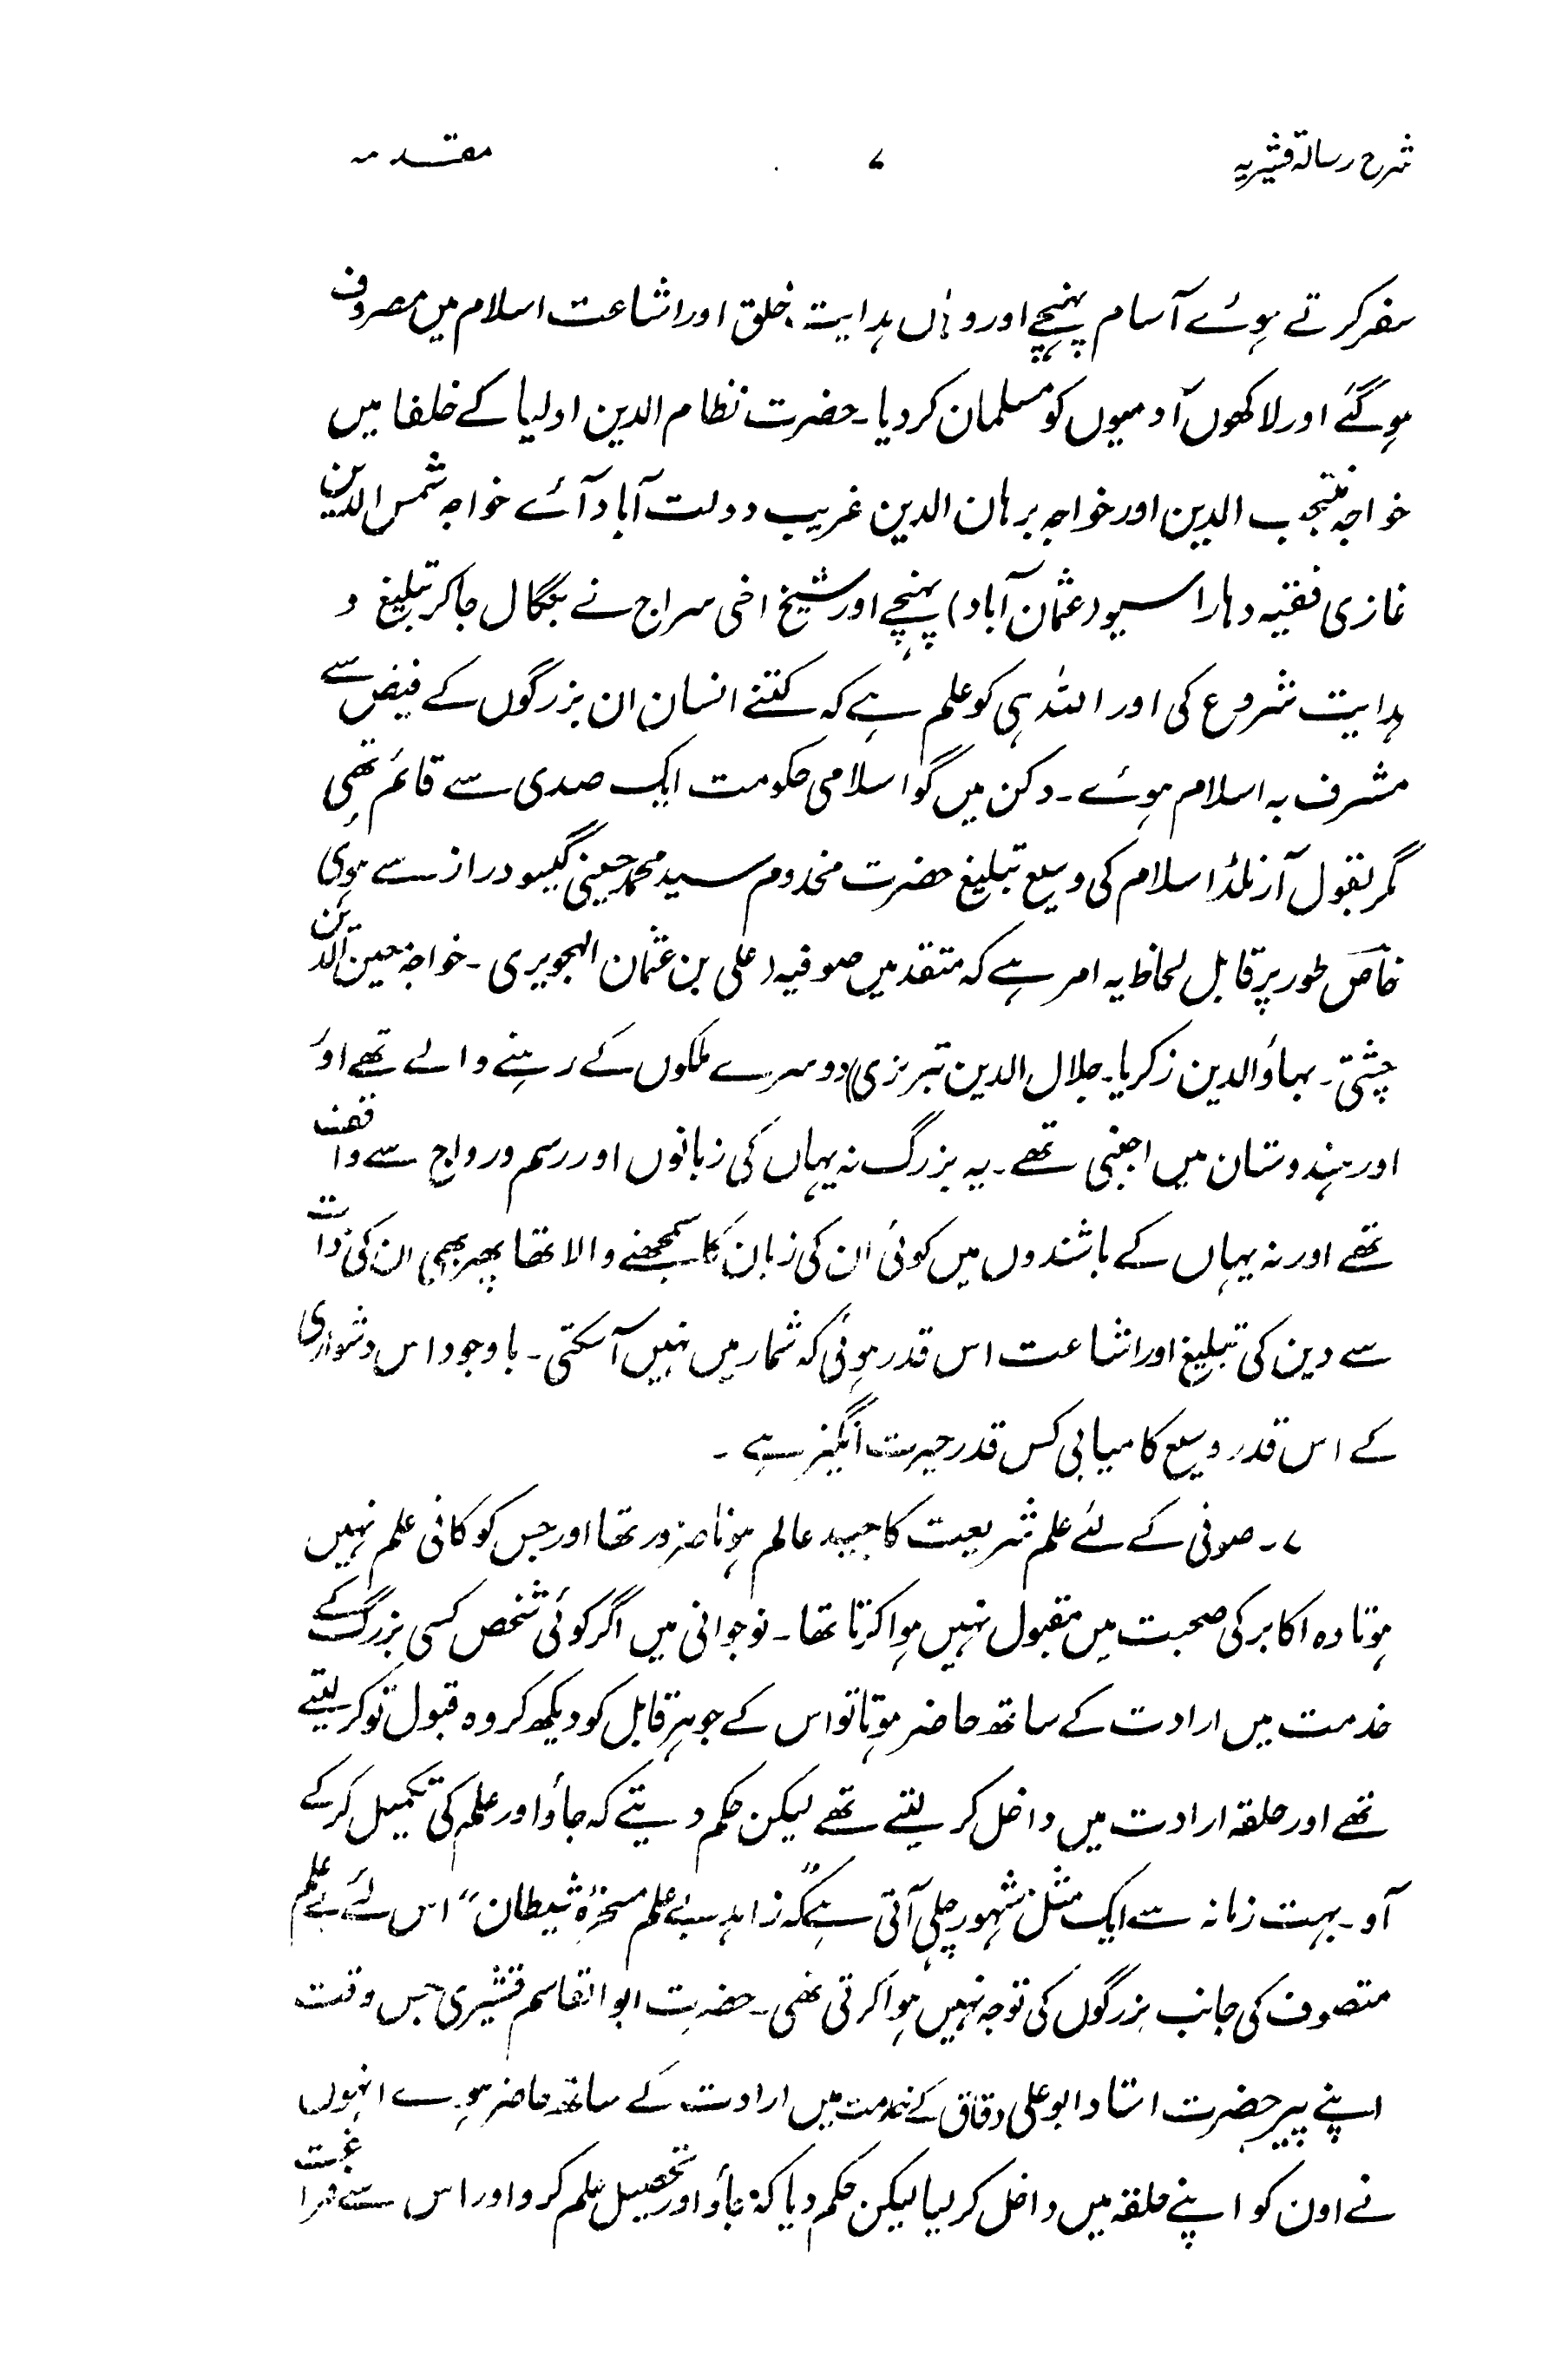 شرح رسالۃ قشیریہ ۷ مقدمہ
سفر کرتے ہوئے آسام پہنچے اور وہاں ہدایت خلق اور اشاعت اسلام میں مصروف
ہو گئے اور لاکھوں آدمیوں کو مسلمان کر دیا۔ حضرت نظام الدین اولیا کے خلفا میں
خواجہ منتجب الدین اور خواجہ برہان الدین غریب دولت آباد آئے خواجہ شمس الدین
غازی فقیہ دہاراسیو (عثمان آباد) پہنچے اور شیخ اخی سراج نے بنگال جا کر تبلیغ و
ہدایت شروع کی اور اللہ ہی کو علم ہے کہ کتنے انسان ان بزرگوں کے فیض سے
مشرف بہ اسلام ہوئے۔ دکن میں گو اسلامی حکومت ایک صدی سے قائم تھی
مگر بقول آرنلڈ اسلام کی وسیع تبلیغ حضرت مخدوم سید محمد حسینی گیسو دراز سے ہوی
خاص طور پر قابل لحاظ یہ امر ہے کہ متقدمیں صوفیہ (علی بن عثمان الہجویری۔ خواجہ معین الدین
چشتی۔ بہاؤالدین زکریا۔ جلال الدین تبریزی) دوسرے ملکوں کے رہنے والے تھے اور
اور ہندوستان میں اجنبی تھے۔ یہ بزرگ نہ یہاں کی زبانوں اور رسم و رواج سے واقف
تھے اور نہ یہاں کے باشندوں میں کوئی ان کی زبان کا سمجھنے والا تھا پھر بھی ان کی ذات
سے دین کی تبلیغ اور اشاعت اس قدر ہوئی کہ شمار میں نہیں آسکتی۔ باوجود اس دشواری
کے اس قدر وسیع کامیابی کس قدر حیرت انگیز ہے۔
۷۔ صوفی کے لئے علم شریعت کا جید عالم ہونا ضرور تھا اور جس کو کافی علم نہیں
ہوتا وہ اکابر کی صحبت میں مقبول نہیں ہوا کرتا تھا۔ نوجوانی میں اگر کوئی شخص کسی بزرگ کے
خدمت میں ارادت کے ساتھ حاضر ہوتا تو اس کے جوہر قابل کو دیکھ کر وہ قبول تو کر لیتے
تھے اور حلقہ ارادت میں داخل کر لیتے تھے لیکن حکم دیتے کہ جاؤ اور علم کی تکمیل کر کے
آو۔ بہت زمانہ سے ایک مثل مشہور چلی آتی ہے کہ "زاہد بے علم مسخرۂ شیطان" اس لئے بے علم
متصوف کی جانب بزرگوں کی توجہ نہیں ہوا کرتی تھی۔ حضرت ابو القاسم قشیری جس وقت
اپنے پیر حضرت استاد ابو علی دقاق کے خدمت میں ارادت کے ساتھ حاضر ہوے انہوں
نے اون کو اپنے حلقہ میں داخل کر لیا لیکن حکم دیا کہ جاؤ اور تحصیل علم کرو اور اس سے فراغت